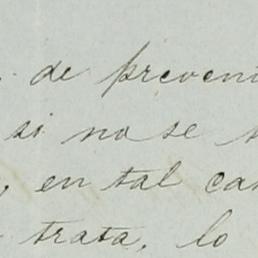 de preveni
si no se
, en tal ca
trata, lo